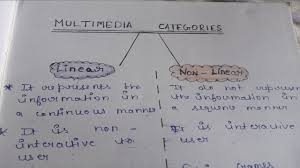 MULTIMEDIA CATEGORIES
Linear
* It represents the
information in
a continuous manner
* It is non -
interactive to
user
Non - Linear
It do not represent
the information in
a manner
It is interactive
user